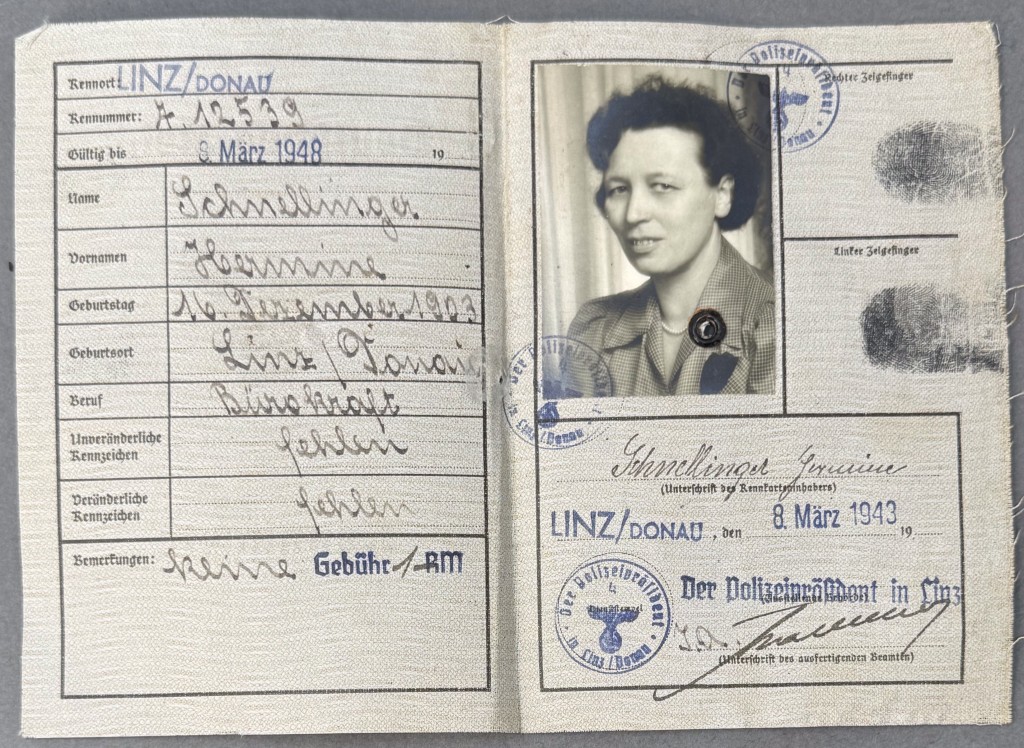 Kennort: LINZ/DONAU
Kennummer: A. 12539
Gültig bis 8. März 1948 19
Name Schnellinger
Vornamen Hermine
Geburtstag 16. Dezember 1903
Geburtsort Linz / Donau
Beruf Bürokraft
Unveränderliche
Kennzeichen fehlen
Veränderliche
Kennzeichen fehlen
Bemerkungen: keine Gebühr 1 RM
Der Polizeipräsident
4
in Linz/Donau
Rechter Zeigefinger
Linker Zeigefinger
Der Polizeipräsident
in Linz/Donau
Schnellinger Hermine
(Unterschrift des Kennkarteninhabers)
LINZ/DONAU, den 8. März 1943 19
Der Polizeipräsident in Linz
(Ausstellende Behörde)
Der Polizeipräsident
4
Dienststempel
in Linz/Donau
I.A.
(Unterschrift des ausfertigenden Beamten)